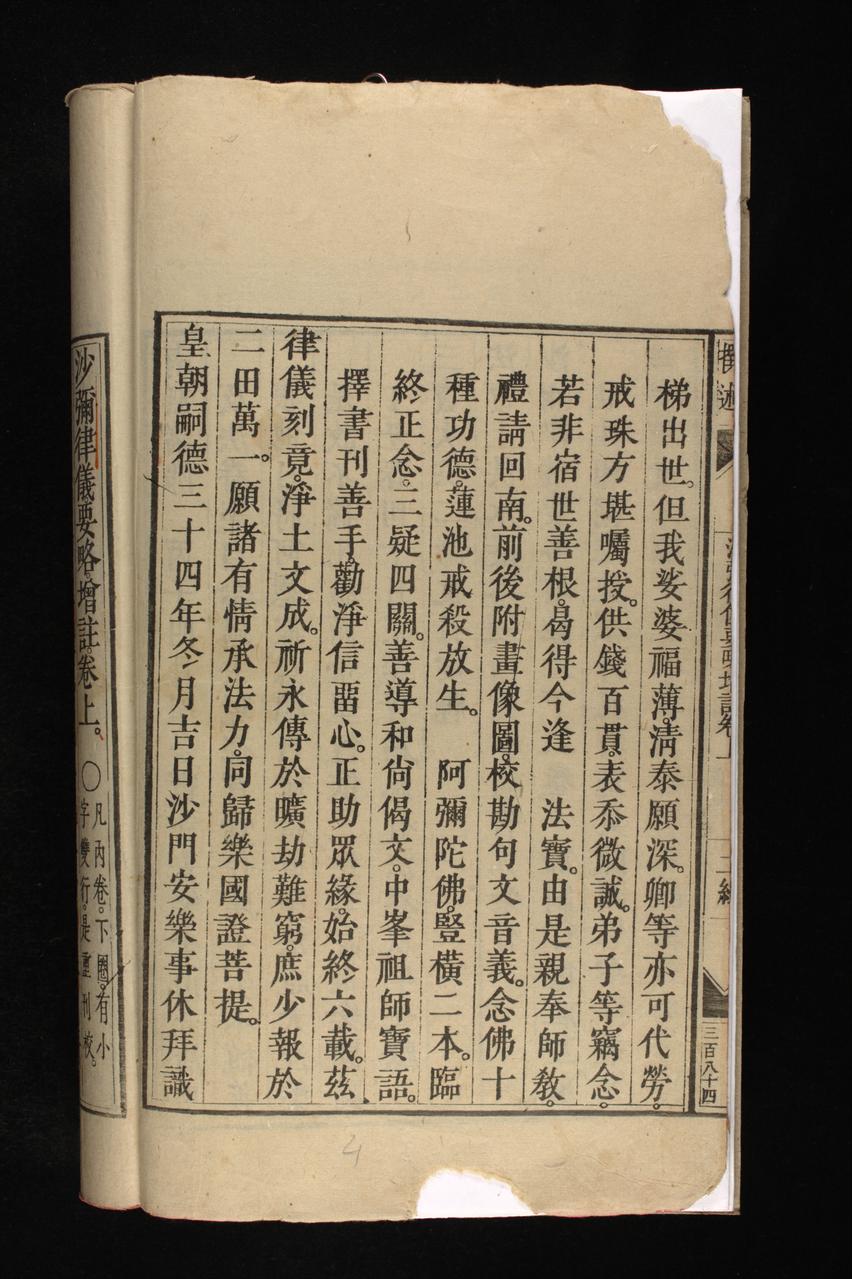 撰述
三百八十四
梯出世。但我娑婆福薄。清泰願深。卿等亦可代勞。
戒珠方堪囑授。供錢百貫。表忝微誠。弟子等竊念。
若非宿世善根。曷得今逢 法寶。由是親奉師教。
禮請回南。前後附畫像圖。校勘句文音義。念佛十
種功德。蓮池戒殺放生。 阿彌陀佛。豎橫二本。臨
終正念。三疑四關。善導和尙偈文。中峯祖師寶語。
擇書刊善手。勸淨信畱心。正助眾緣。始終六載。茲
律儀刻竟。淨土文成。祈永傳於曠劫難窮。庶少報於
二田萬一。願諸有情承法力。同歸樂國證菩提。
皇朝嗣德三十四年冬月吉日沙門安樂事休拜識
沙彌律儀要略增註卷上。
○凡內卷。下圈。有小
字雙行。是重刊校。